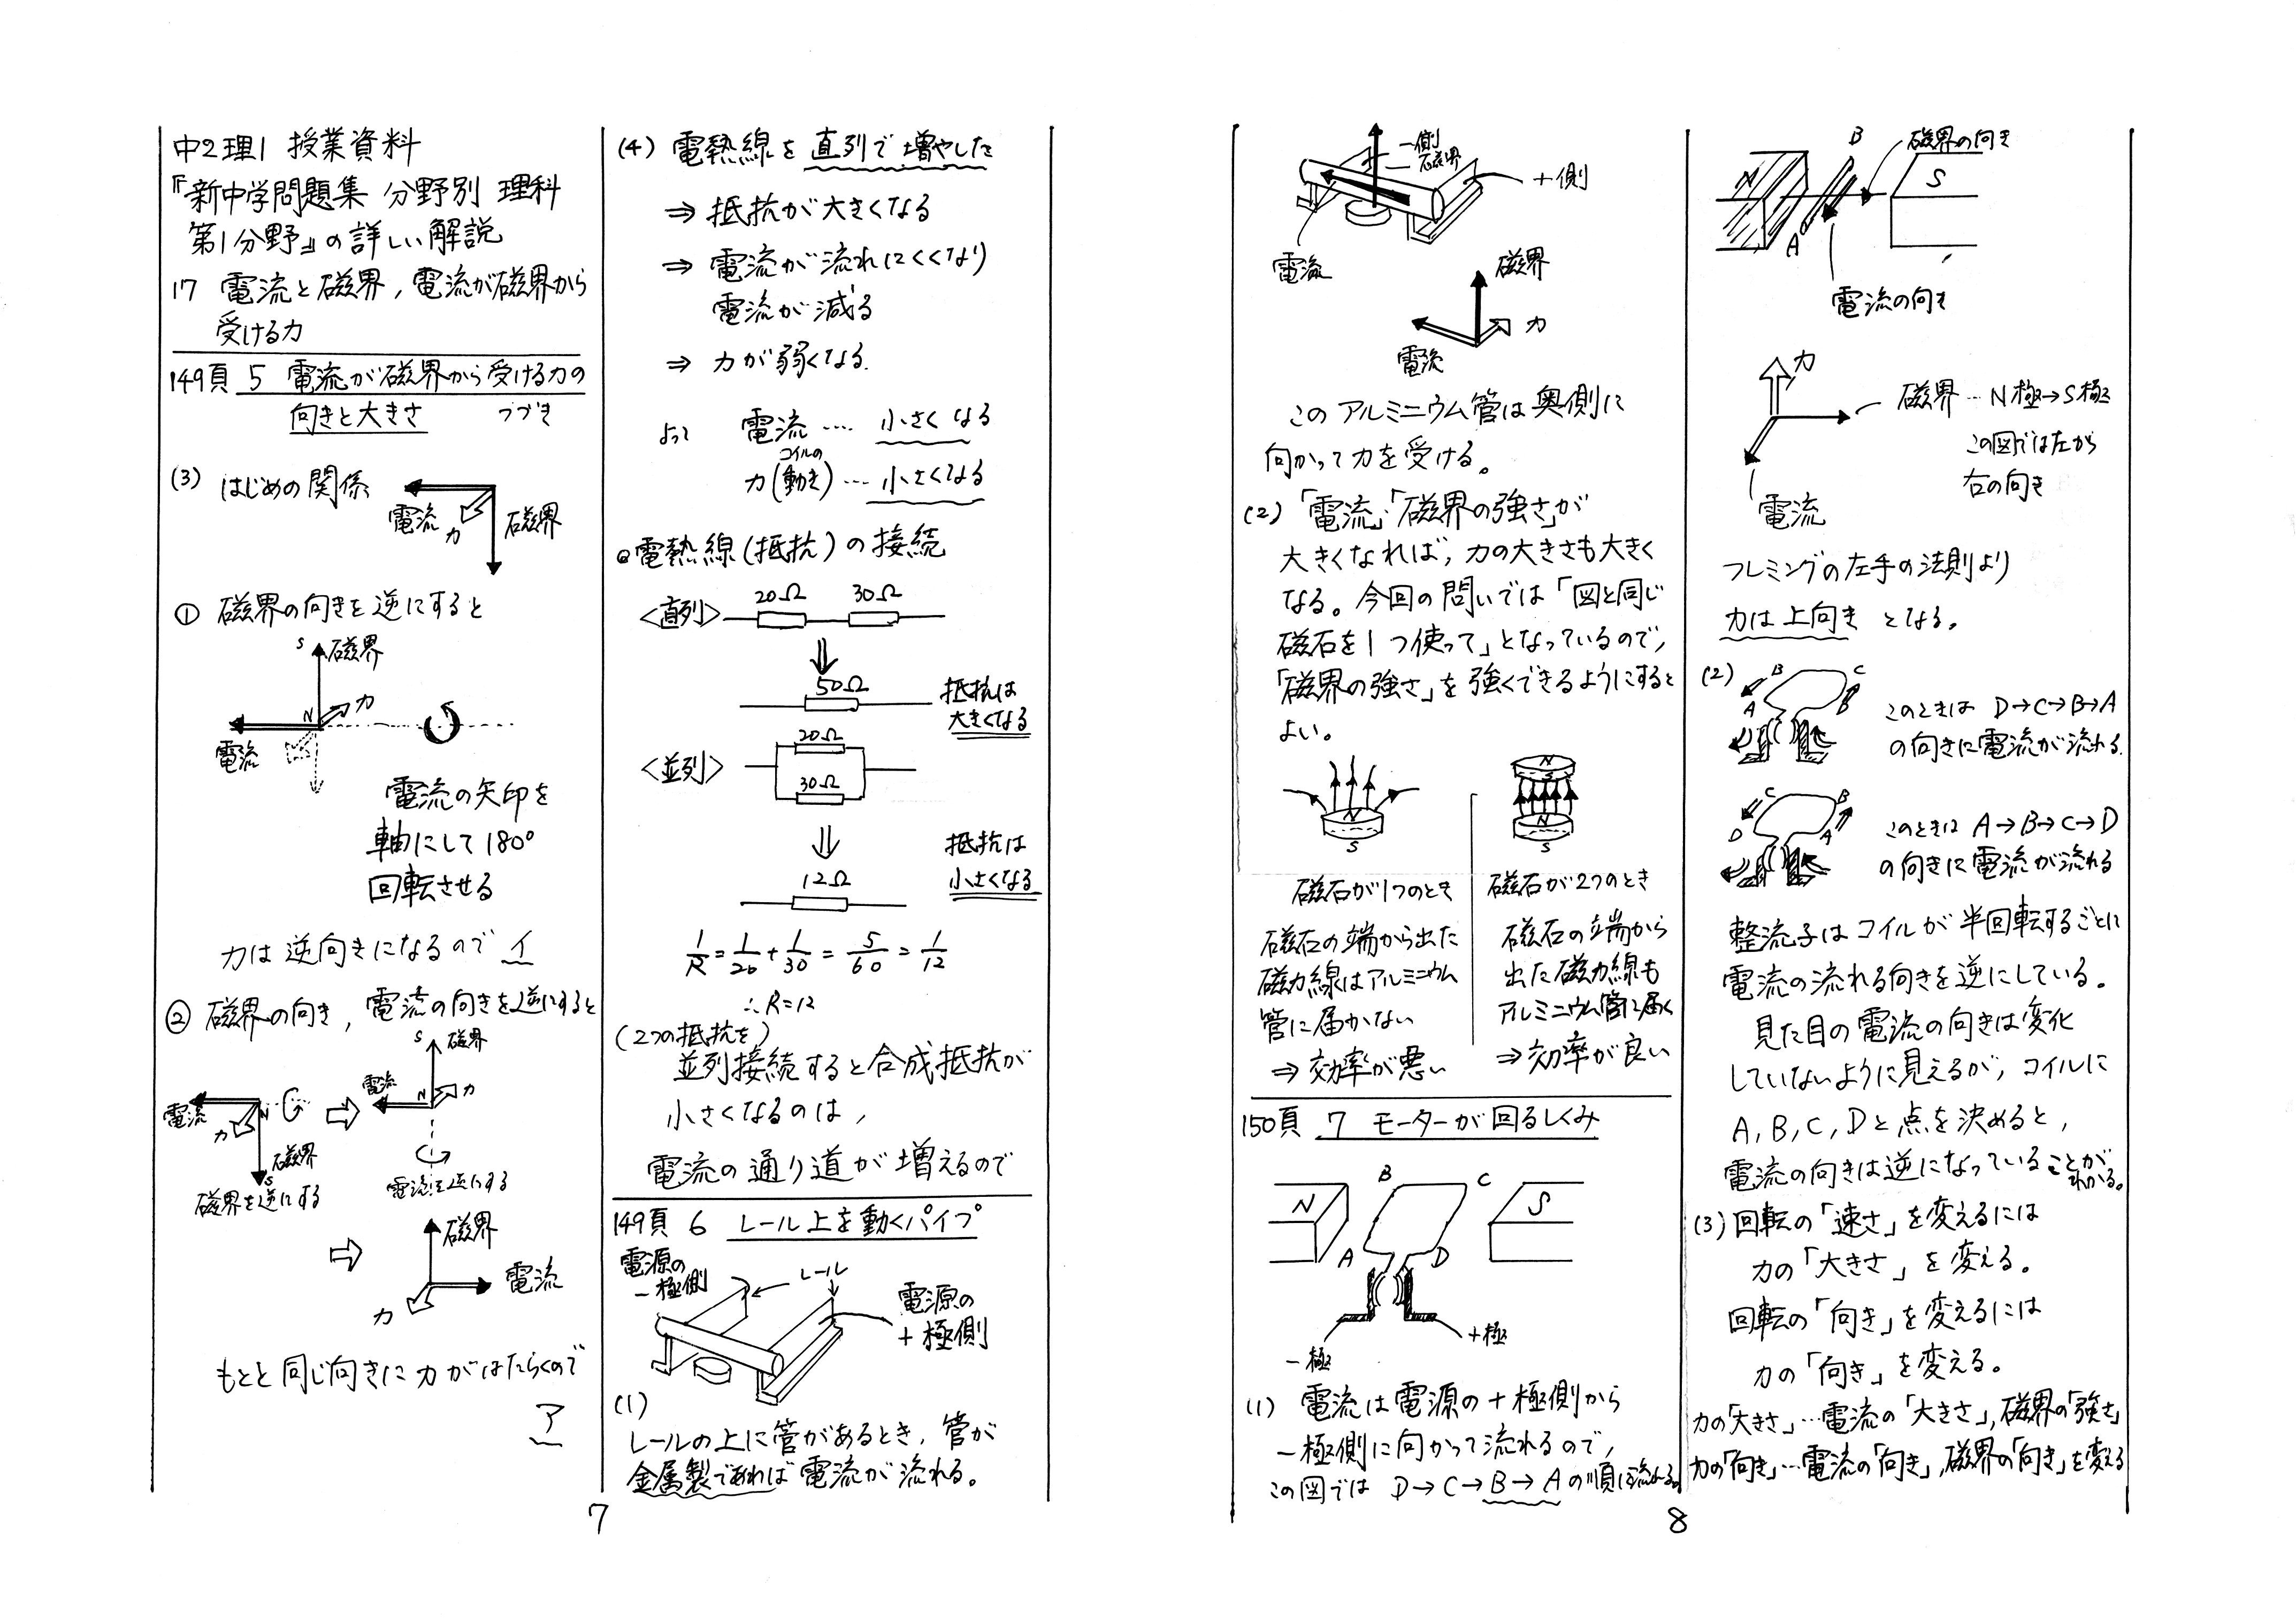 中2理1 授業資料
『新中学問題集 分野別 理科
第1分野』の詳しい解説
17 電流と磁界，電流が磁界から
受ける力
149頁 5 電流が磁界から受ける力の
向きと大きさ つづき
(3) はじめの関係
電流 力 磁界
① 磁界の向きを逆にすると
S 磁界
N 力
電流
電流の矢印を
軸にして180°
回転させる
力は逆向きになるので イ
② 磁界の向き，電流の向きを逆にすると
電流 力 N
磁界
S
磁界を逆にする
S 磁界
電流 N 力
電流を逆にする
磁界
電流
力
もとと同じ向きに力がはたらくので
ア
(4) 電熱線を直列で増やした
⇒ 抵抗が大きくなる
⇒ 電流が流れにくくなり
電流が減る
⇒ 力が弱くなる.
よって 電流 …. 小さくなる
コイルの
力(動き) … 小さくなる
◎電熱線(抵抗)の接続
<直列> 20Ω 30Ω
⇓
50Ω 抵抗は
大きくなる
<並列> 20Ω
30Ω
⇓
12Ω 抵抗は
小さくなる
1/R = 1/20 + 1/30 = 5/60 = 1/12
∴R=12
(2つの抵抗を)
並列接続すると合成抵抗が
小さくなるのは，
電流の通り道が増えるので
149頁 6 レール上を動くパイプ
電源の
−極側
レール
電源の
＋極側
(1)
レールの上に管があるとき，管が
金属製であれば電流が流れる。
7
−側
磁界
＋側
電流
磁界
力
電流
このアルミニウム管は奥側に
向かって力を受ける。
(2) 「電流」「磁界の強さ」が
大きくなれば，力の大きさも大きく
なる。今回の問いでは「図と同じ
磁石を1つ使って」となっているので，
「磁界の強さ」を強くできるようにすると
よい。
N
S
磁石が1つのとき
磁石の端から出た
磁力線はアルミニウム
管に届かない
⇒ 効率が悪い
N
S
N
S
磁石が2つのとき
磁石の端から
出た磁力線も
アルミニウム管に届く
⇒効率が良い
150頁 7 モーターが回るしくみ
N B C S
A D
−極 ＋極
(1) 電流は電源の＋極側から
−極側に向かって流れるので，
この図では D→C→B→Aの順に流れる。
B 磁界の向き
N S
A
電流の向き
力
磁界 … N極→S極
この図では左から
右の向き
電流
フレミングの左手の法則より
力は上向き となる。
(2) B C
A B
このときは D→C→B→A
の向きに電流が流れる.
C B
D A
このときは A→B→C→D
の向きに電流が流れる
整流子はコイルが半回転するごとに
電流の流れる向きを逆にしている。
見た目の電流の向きは変化
していないように見えるが，コイルに
A，B，C，Dと点を決めると，
電流の向きは逆になっていることが
わかる。
(3) 回転の「速さ」を変えるには
力の「大きさ」を変える。
回転の「向き」を変えるには
力の「向き」を変える。
力の「大きさ」…電流の「大きさ」，磁界の「強さ」
力の「向き」…電流の「向き」，磁界の「向き」を変える
8